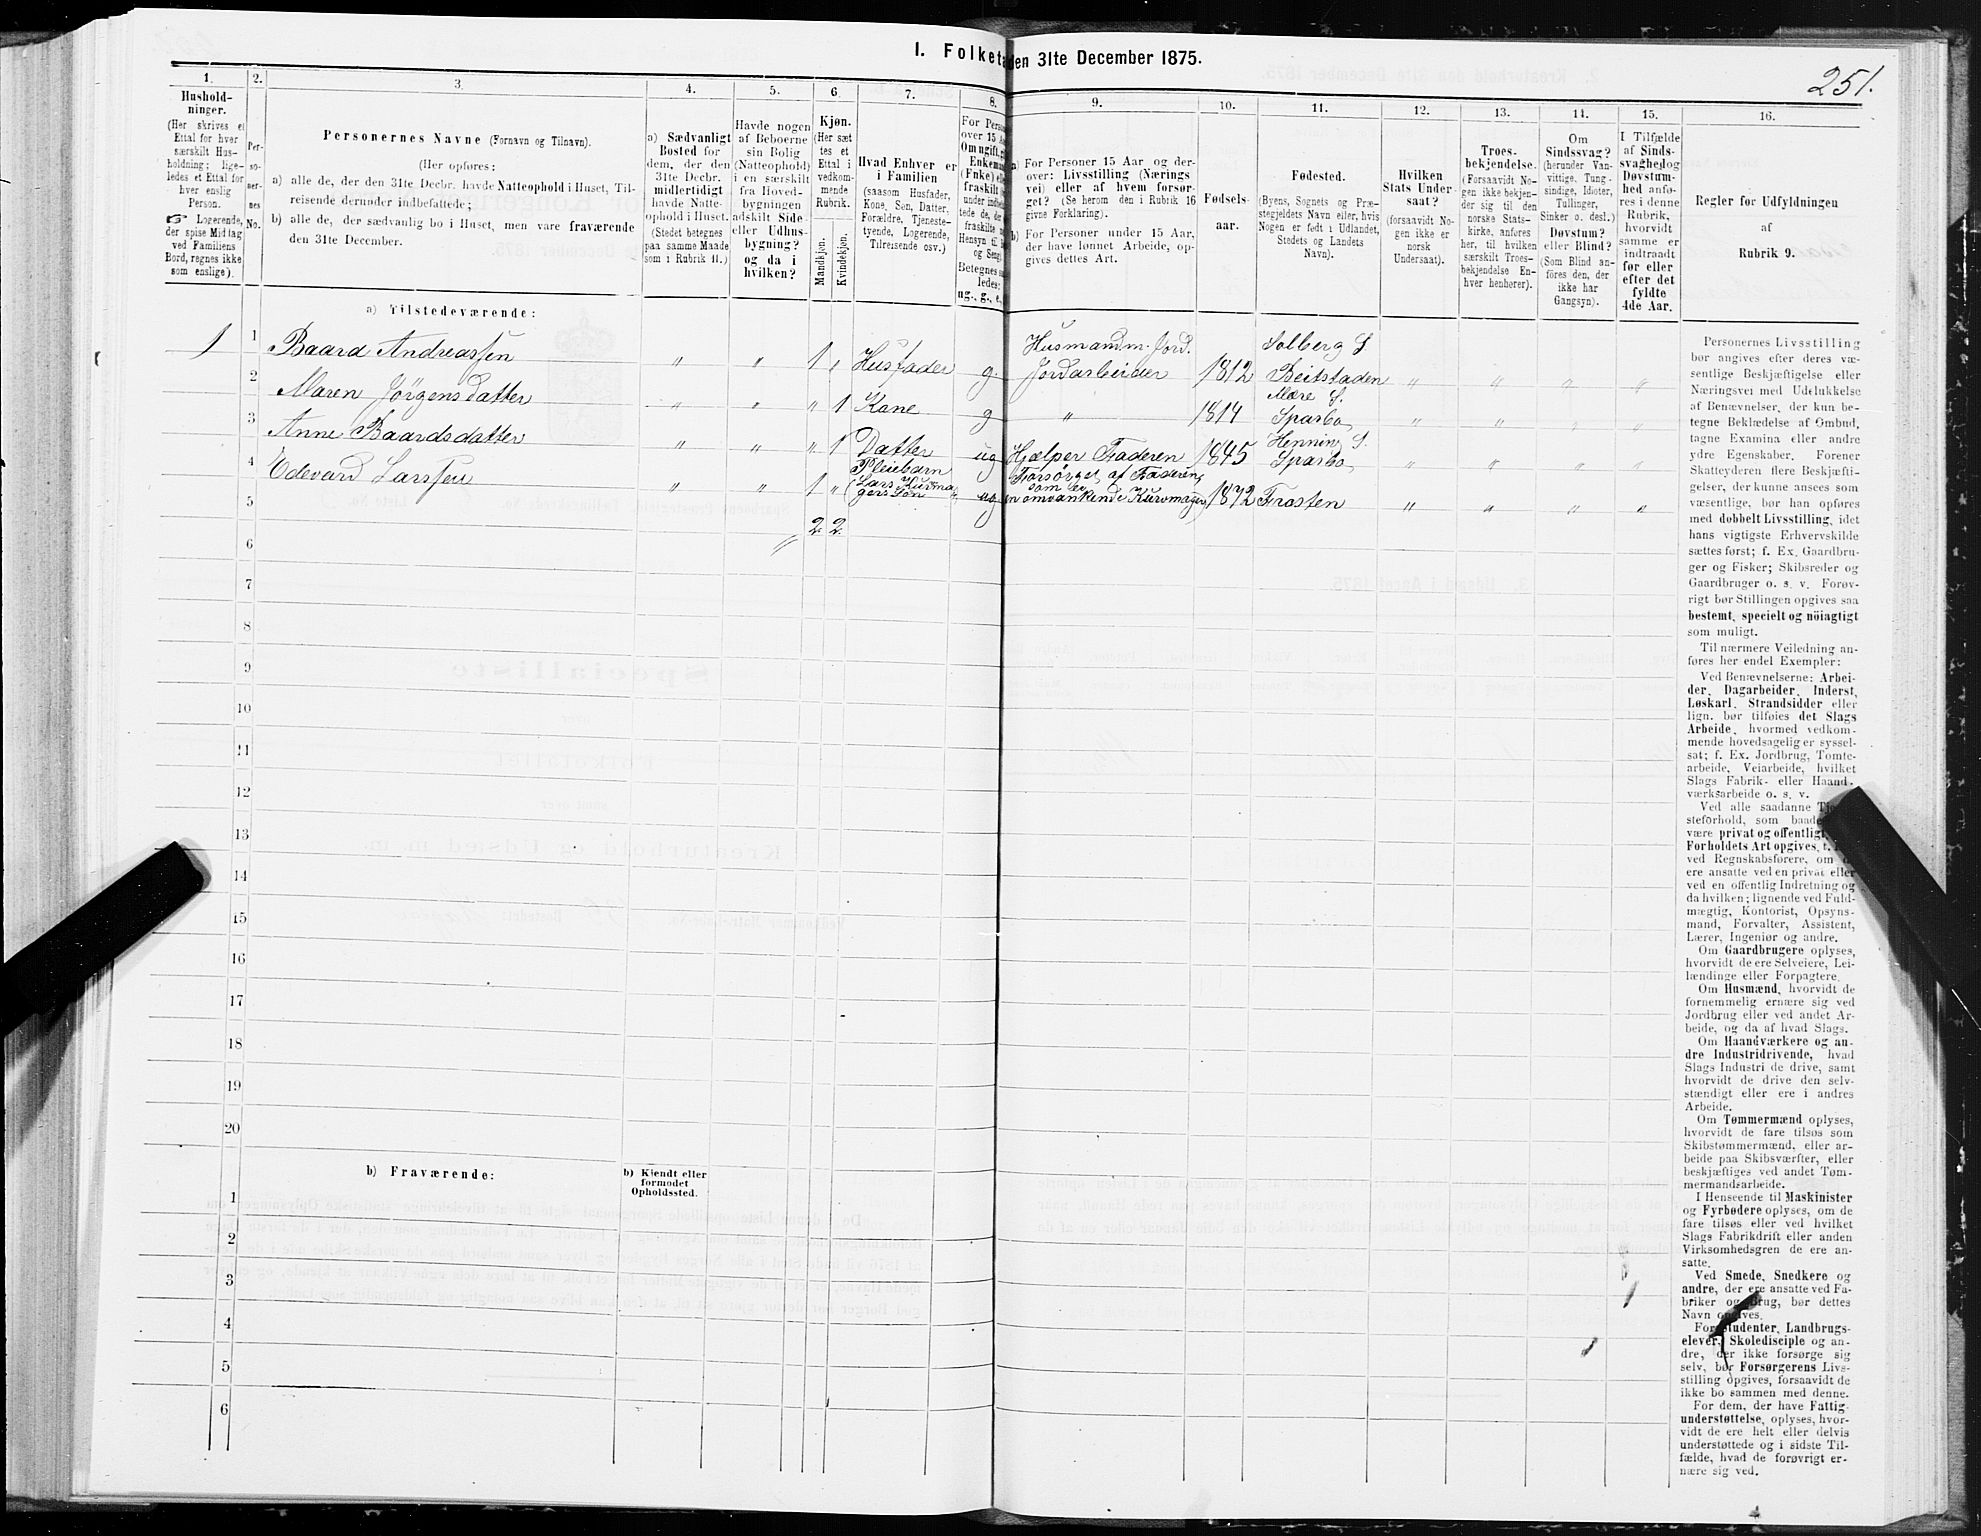 I. Folketa
den 31te December 1875.
251.
1.
2.
3.
4.
5.
6.
7.
8.
9.
10.
11.
12.
13.
14.
15.
16.
Hushold-
ninger.
(Her skrives et
Ettal for hver
særskilt Hus-
holdning; lige-
ledes et Ettal for
hver enslig
Person.
☞ Logerende,
der spise Middag
ved Familiens
Bord, regnes ikke
som enslige).
Per-
so-
ner-
nes
No.
Personernes Navne (Fornavn og Tilnavn).
(Her opføres:
a) alle de, der den 31te Decbr. havde Natteophold i Huset, Til-
reisende derunder indbefattede;
b) alle de, der sædvanlig bo i Huset, men vare fraværende
den 31te December.
a) Sædvanligt
Bosted for
dem, der den
31te Decbr.
midlertidigt
havde Natte-
ophold i Huset.
(Stedet betegnes
paa samme Maade
som i Rubrik 11.)
Havde nogen
af Beboerne
sin Bolig
(Natteophold)
i en særskilt
fra Hoved-
bygningen
adskilt Side-
eller Udhus-
bygning?
og da i
hvilken?
Kjøn.
(Her sæt-
tes et
Ettal i
vedkom-
mende
Rubrik.
Mandkjøn.
Kvindekjøn.
Hvad Enhver er
i Familien
(saasom Husfader,
Kone, Søn, Datter,
Forældre, Tjeneste-
tyende, Logerende,
Tilreisende osv.)
For Perso
over 15 A
Om ugift, g
Enkeman
(Fnke) ell
fraskilt o
under indb
tede de, de
fraskilte
Hensyn til
og Seng.
Betegnes s
ledes:
ug., g., e.,
a) For Personer 15 Aar og der-
over: Livsstilling (Nærings-
vei) eller af hvem forsør-
get? (Se herom den i Rubrik 16
givne Forklaring).
b) For Personer under 15 Aar,
der have lønnet Arbeide, op-
gives dettes Art.
Fødsels-
aar.
Fødested.
(Byens, Sognets og Præ-
stegjeldets Navn eller, hvis
Nogen er født i Udlandet,
Stedets og Landets
Navn).
Hvilken
Stats Under-
saat?
(forsaavidt No-
gen ikke er
norsk
Undersaat).
Troes-
bekjendelse.
(Forsaavidt No-
gen ikke bekjen-
der sig til den
norske Stats-
kirke, anføres
her, til hvilken
særskilt Troes-
bekjendelse En-
hver henhører).
Om
Sindssvag?
(herunder Van-
vittige, Tung-
sindige, Idioter,
Tullinger,
Sinker o. desl.)
Døvstum?
eller Blind?
(Som Blind an-
føres den, der
ikke har
Gangsyn).
I Tilfælde
af Sinds-
svaghed og
Døvstum-
hed anfø-
res i denne
Rubrik,
hvorvidt
samme er
indtraadt
før eller
efter det
fyldte
4de Aar.
Regler før Udfyldningen
af
Rubrik 9.
a) Tilstedeværende:
1 1 Baard Andreassen " " 1 " Husfader g. Husmand m. Jord. Jordarbeider 1812 Solberg S Beitstaden " " " "
2 Maren Jørgensdatter " " " 1 Kone g " 1814 Mære S. Sparbo " " " "
3 Anne Baardsdatter " " " 1 Datter ug Hjælper Faderen 1845 Henning S. Sparbo " " " "
4 Edevard Larssen " " 1 " Pleiebarn (Lars Kurvmagers Søn " ug Forsørget af Faderen som er en omvankende Kurvmager) 1872 Frosten " " " "
5
2. 2.
6
7
8
9
10
11
12
13
14
15
16
17
18
19
20
b) Fraværende:
b) Kjendt eller
formodet
Opholdssted.
1
2
3
4
5
6
Personernes Livsstilling
bør angives efter deres væ-
sentlige Beskjæftigelse eller
Næringsvei med Udelukkelse
af Benævnelser, der kun be-
tegne Beklædelse af Ombud,
tagne Examina eller andre
ydre Egenskaber. Forener
Skatteyderen flere Beskjæfti-
gelser, der kunne ansees som
væsentlige, bør han opføres
med dobbelt Livsstilling, idet
hans vigtigste Erhvervskilde
sættes først; f. Ex. Gaardbru-
ger og Fisker; Skibsreder og
Gaardbruger o. s. v. Forøv-
rigt bør Stillingen opgives saa
bestemt, specielt og nöiagtigt
som muligt.
Til nærmere Veiledning an-
føres her endel Exempler:
Ved Benævnelserne: Arbei-
der, Dagarbeider, Inderst,
Løskarl, Strandsidder eller
lign. bør tilføies det Slags
Arbeide, hvormed vedkom-
mende hovedsagelig er syssel-
sat; f. Ex. Jordbrug, Tomte-
arbeide, Veiarbeide, hvilket
Slags Fabrik- eller Haand-
værksarbeide o. s. v.
Ved alle saadanne
steforhold, som baade
være privat og offentligt,
Forholdets Art opgives,
ved Regnskabsførere, om
ere ansatte ved en privat eller
ved en offentlig Indretning og
da hvilken; lignende ved Fuld-
mægtig, Kontorist, Opsyns-
mand, Forvalter, Assistent,
Lærer, Ingeniør og andre.
Om Gaardbrugere oplyses,
hvorvidt de ere Selveiere, Lei-
lændinge eller Forpagtere.
Om Husmænd, hvorvidt de
fornemmelig ernære sig ved
Jordbrug eller ved andet Ar-
beide, og da af hvad Slags.
Om Haandværkere og an-
dre Industridrivende, hvad
Slags Industri de drive, samt
hvorvidt de drive den selv-
stændigt eller ere i andres
Arbeide.
Om Tømmermænd oplyses,
hvorvidt de fare tilsøs som
Skibstømmermænd, eller ar-
beide paa Skibsværfter, eller
beskjæftiges ved andet Tøm-
mermandsarbeide.
I Henseende til Maskinister
og Fyrbødere oplyses, om de
fare tilsøs eller ved hvilket
Slags Fabrikdrift eller anden
Virksomhedsgren de ere an-
satte.
Ved Smede, Snedkere og
andre, der ere ansatte ved Fa-
briker og Brug, bør dettes
Navn opgives.
For Studenter, Landbrugs-
elever, Skoledisciple og an-
dre, der ikke forsørge sig
selv, bør Forsørgerens Livs-
stilling opgives, forsaavidt de
ikke bo sammen med denne.
For dem, der have Fattig-
understøttelse, oplyses, hvor-
vidt de ere helt eller delvis
understøttede og i sidste Til-
fælde, hvad de forøvrigt er-
nære sig ved.